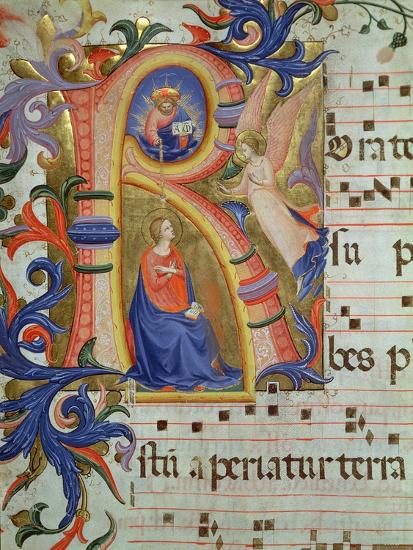 ROrate
su p
bes pl
istū aperiatur terra